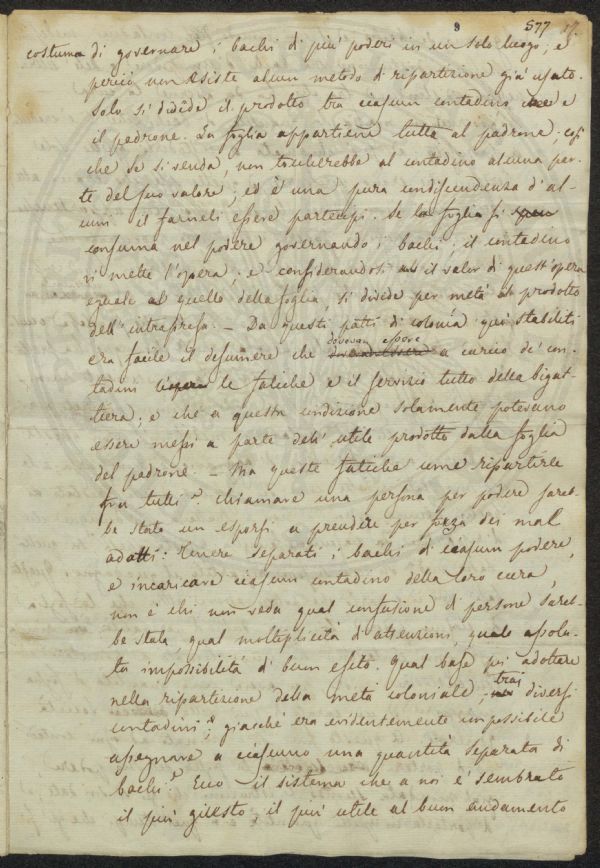 9 577 17.
costuma di governare i bachi di più poderi in un solo luogo; e
perciò non esiste alcun metodo di ripartizione già usato.
Solo si divide il prodotto tra ciascun contadino e
il padrone. La foglia appartiene tutta al padrone; così
che se si venda, non toccherebbe al contadino alcuna par-
te del suo valore; ed è una pura condiscendenza d'al-
cuni il farneli essere partecipi. Se la foglia si
consuma nel podere governando i bachi, il contadino
vi mette l'opera, e considerandosi il valor di quest'opera
eguale al quello della foglia, si divide per metà il prodotto
dell'intrapresa. _ Da questi patti di colonìa quì stabiliti
dovevan essere
era facile il desumere che a carico de' con-
tadini le fatiche e il servizio tutto della bigat-
tiera; e che a questa condizione solamente potevano
essere messi a parte dell'utile prodotto dalla foglia
del padrone. _ Ma queste fatiche come ripartirle
fra tutti? Chiamare una persona per podere sareb-
be stato un esporsi a prendere per forza dei mal
adatti: Tenere separati i bachi di ciascun podere,
e incaricare ciascun contadino della loro cura,
non è chi non veda qual confusione di persone sareb-
be stata, qual moltiplicità di attenzioni, quale assolu-
ta impossibilità di buon esito. Qual base poi adottare
nella ripartizione della metà coloniale, trai diversi
contadini; giacchè era evidentemente impossibile
assegnare a ciascuno una quantità separata di
bachi? Ecco il sistema che a noi è sembrato
il più giusto, il più utile al buon andamento